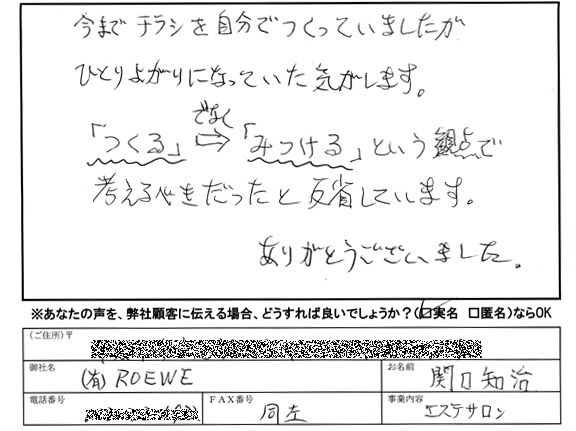 今まで チラシを自分でつくっていましたが
ひとりよがりになっていた気がします。
でなく
「つくる」⇨「みつける」という観点で
考えるべきだったと反省しています。
ありがとうございました。
※あなたの声を、弊社顧客に伝える場合、どうすれば良いでしょうか?(☑実名 □匿名)ならOK
(ご住所)〒
御社名 (有)ROEWE お名前 関口知治
電話番号 FAX番号 同左 事業内容 エステサロン